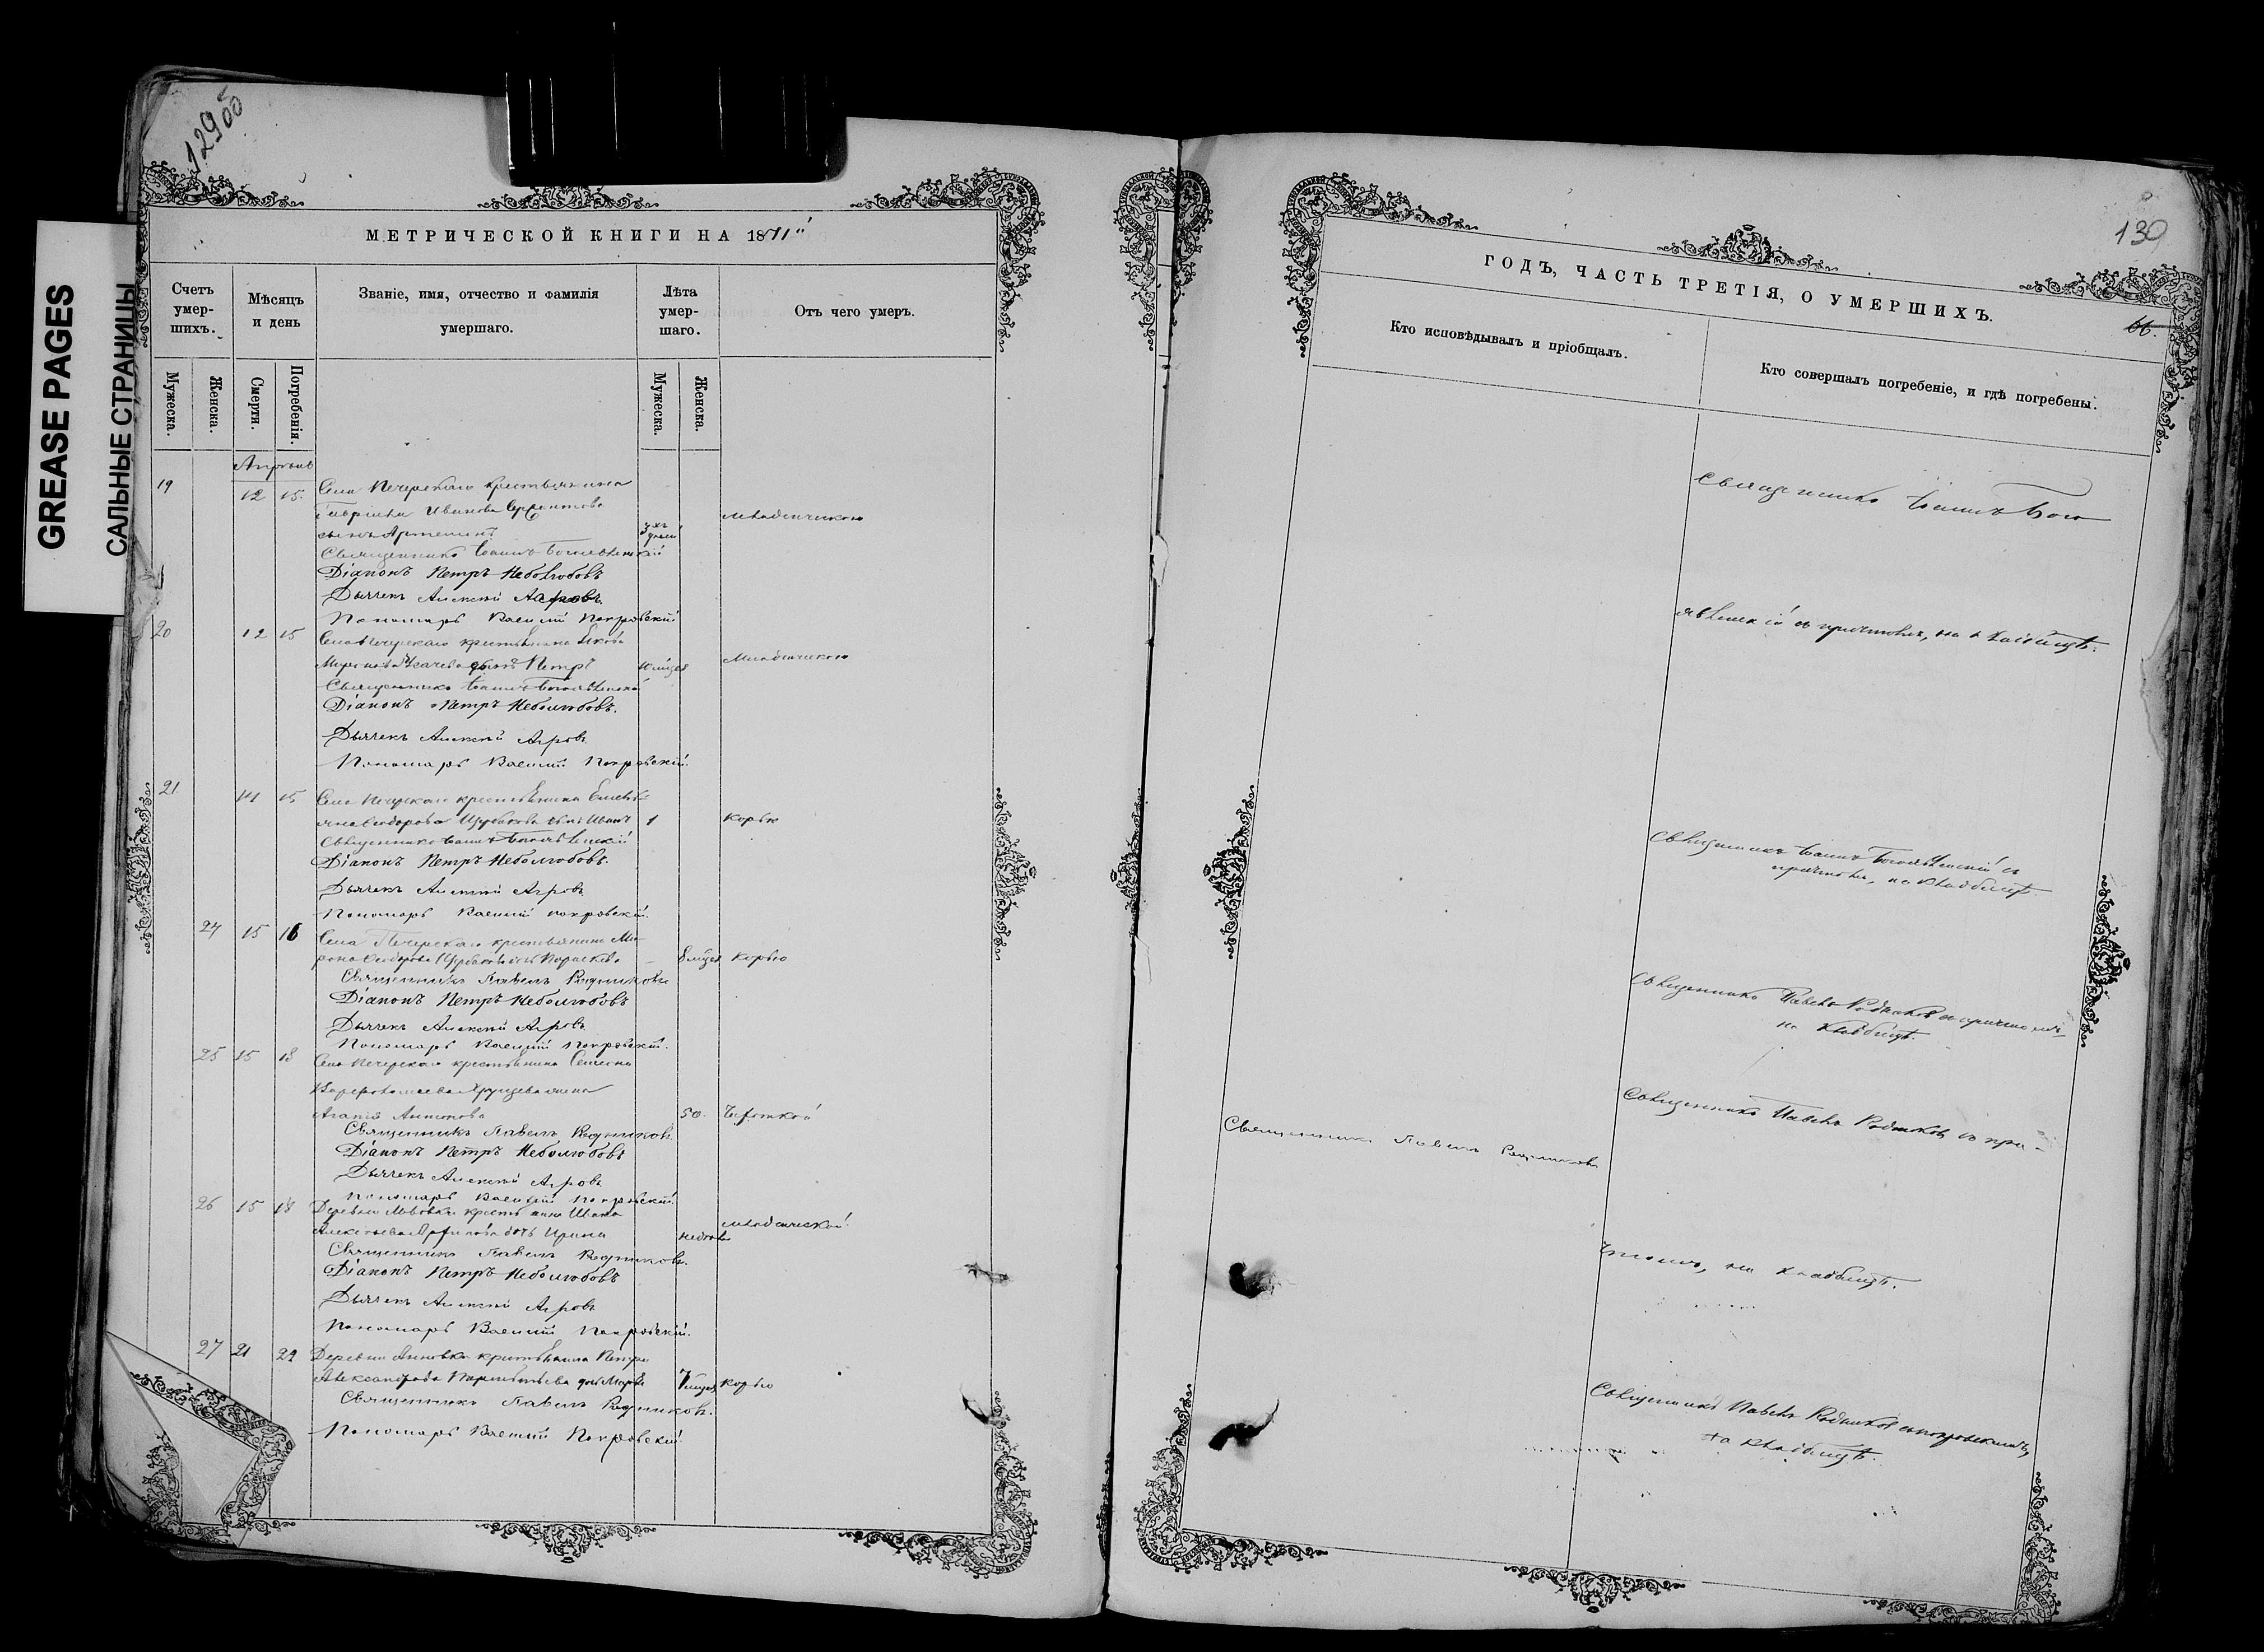 129об
GREASE PAGES
САЛЬНЫЕ СТРАНИЦЫ
МЕТРИЧЕСКОЙ КНИГИ НА 1871
Счетъ умер-шихъ.
Мѣсяцъ и день
Званіе, имя, отчество и фамилія умершаго.
Лѣта умер-шаго.
Отъ чего умеръ.
Мужеска.
Женска.
Смерти.
Погребенія.
Мужеска.
Женска.
Апрѣль
19 12 15. Села Печерскаго крестьянина
Гавріила Иванова
сынъ Артемій
младенческою
Священникъ Іоаннъ Богоявленскій
Діаконъ Петръ Неболюбовъ
Дьячекъ Алексѣй Агровъ
Пономарь Василій Покровскій
20 12 15 Села Печерскаго крестьянина Якова
сынъ Петръ
Младенческою
Священникъ Іоаннъ Богоявленскій
Діаконъ Петръ Неболюбовъ.
Дьячекъ Алексѣй Агровъ
Пономарь Василій Покровскій.
21 14 15 Села Печерскаго крестьянина Емель-
яна Сидорова сынъ Иванъ 1 корью
Священникъ Іоаннъ Богоявленскій
Діаконъ Петръ Неболюбовъ.
Дьячекъ Алексѣй Агровъ
Пономарь Василій Покровскій.
24 15 16 Села Печерскаго крестьянина Ми-
рона Сидорова дочь Параскева 8 мѣсяц корью
Священникъ Павелъ Родниковъ
Діаконъ Петръ Неболюбовъ
Дьячекъ Алексѣй Агровъ
Пономарь Василій Покровскій.
25 15 18 Села Печерскаго крестьянина Семена
Варфоломеева жена
Агафія Антонова 50. Чахоткой
Священникъ Павелъ Родниковъ
Діаконъ Петръ Неболюбовъ
Дьячекъ Алексѣй Агровъ
Пономарь Василій Покровскій.
26 15 18 Деревни Львовки крестьянина Ивана
Алексѣева дочь Ирина
младенческой
Священникъ Павелъ Родниковъ.
Діаконъ Петръ Неболюбовъ
Дьячекъ Алексѣй Агровъ
Пономарь Василій Покровскій.
27 21 22 Деревни Янновки крестьянина Петра
Александрова дочь Марья 7 мѣсяц корью
Священникъ Павелъ Родниковъ.
Пономарь Василій Покровскій.
130
66.
ГОДЪ, ЧАСТЬ ТРЕТІЯ, О УМЕРШИХЪ.
Кто исповѣдывалъ и пріобщалъ.
Кто совершалъ погребеніе, и гдѣ погребены.
Священникъ Іоаннъ Бого
явленскій съ причтомъ, на кладбищѣ.
Священникъ Іоаннъ Богоявленскій съ
причтомъ, на кладбищѣ
Священникъ Павелъ Родниковъ съ причтомъ
на кладбищѣ.
Священникъ Павелъ Родниковъ
Священникъ Павелъ Родниковъ съ при-
чтомъ, на кладбищѣ.
Священникъ Павелъ Родниковъ съ Покровскимъ,
на кладбищѣ.